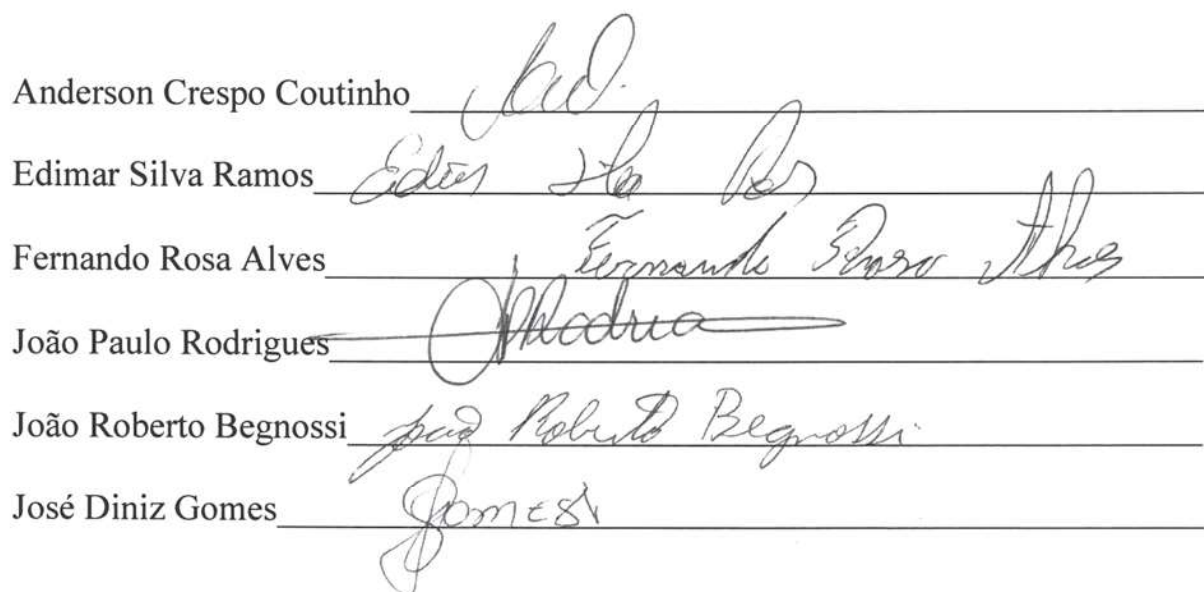 Anderson Crespo Coutinho
Edimar Silva Ramos
Fernando Rosa Alves Fernando Rosa Alves
João Paulo Rodrigues
João Roberto Begnossi João Roberto Begnossi
José Diniz Gomes Gomes